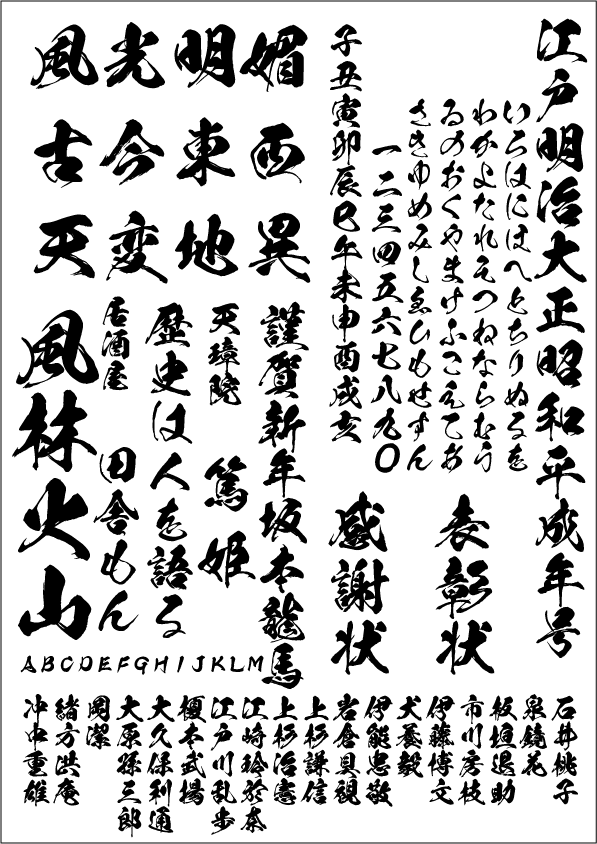 江戸明治大正昭和平成年号
いろはにほへとちりぬるを
わかよたれそつねならむう
ゐのおくやまけふこえてあ
さきゆめみしゑひもせすん
一二三四五六七八九〇
子丑寅卯辰巳午未申酉戌亥
表彰状
感謝状
媚明光風
西東今古
異地変天
謹賀新年坂本龍馬
天璋院
篤姫
歴史は人を語る
居酒屋
田舎もん
風林火山
ABCDEFGHIJKLM
石井桃子
泉鏡花
板垣退助
市川房枝
伊藤博文
犬養毅
伊能忠敬
岩倉具視
上杉謙信
上杉治憲
江崎玲於奈
江戸川乱歩
榎本武揚
大久保利通
大原孫三郎
岡潔
緒方洪庵
沖中重雄